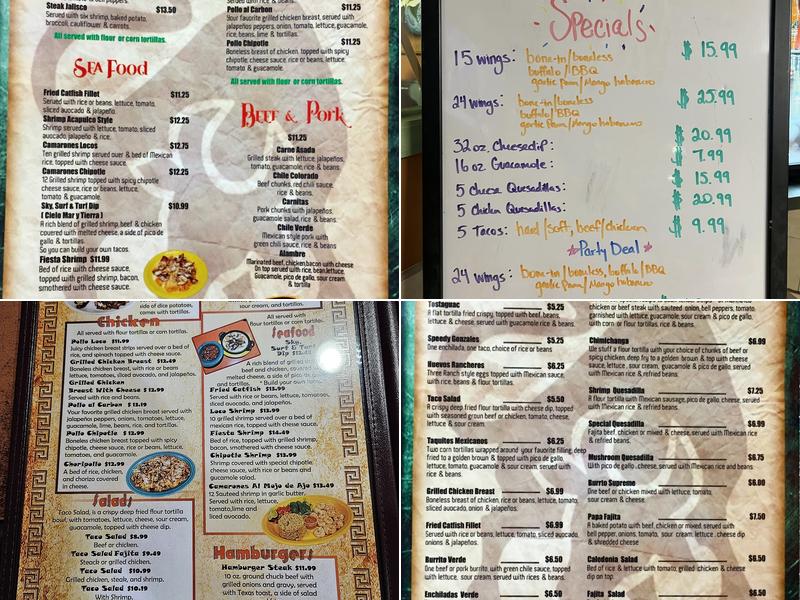 Steak Jalisco $13.50
Served with six shrimp, baked potato,
broccoli, cauliflower & carrots.
All served with flour or corn tortillas.
Sea Food
Fried Catfish Fillet $11.25
Served with rice or beans, lettuce, tomato,
sliced avocado & jalapeño.
Shrimp Acapulco Style $12.25
Shrimp served with lettuce, tomato, sliced
avocado, jalapeño & rice.
Camarones Locos $12.75
Ten grilled shrimp served over & bed of Mexican
rice, topped with cheese sauce.
Camarones Chipotle $12.25
12 Grilled shrimp topped with spicy chipotle
cheese sauce, rice or beans, lettuce,
tomato & guacamole.
Sky, Surf & Turf Dip $10.99
( Cielo Mar y Tierra )
A rich blend of grilled shrimp, beef & chicken
covered with melted cheese, a side of pico de
gallo & tortillas.
So you can build your own tacos.
Fiesta Shrimp $11.99
Bed of rice with cheese sauce,
topped with grilled shrimp, bacon,
smothered with cheese sauce.
$11.25
Pollo al Carbon
Your favorite grilled chicken breast, served with
jalapeños peppers, onion, tomato, lettuce, guacamole,
rice, beans, lime & tortillas.
Pollo Chipotle $11.25
Boneless breast of chicken, topped with spicy
chipotle cheese sauce, rice or beans, lettuce,
tomato & guacamole.
All served with flour or corn tortillas.
Beef & Pork
$11.25
Carne Asada
Grilled steak with lettuce, jalapeños,
tomato, guacamole, rice & beans.
Chile Colorado
Beef chunks, red chili sauce,
rice & beans.
Carnitas
Pork chunks with jalapeños,
guacamole salad, rice & beans.
Chile Verde
Mexican style pork with
green chili sauce, rice & beans.
Alambre
Marinated beef, chicken, bacon with cheese
On top served with rice, bean, lettuce,
Guacamole, pico de gallo, sour cream
& tortilla
Specials
15 wings: bone-in/boneless $15.99
buffalo/BBQ
garlic Parm/Mango habanero
24 wings: bone-in/boneless $25.99
buffalo/BBQ
garlic Parm/Mango habanero
32 oz. Cheesedip: $20.99
16 oz Guacamole: $7.99
5 Cheese Quesadillas: $15.99
5 Chicken Quesadillas: $20.99
5 Tacos: hard/soft, beef/chicken $9.99
Party Deal
24 wings: bone-in/boneless, buffalo/BBQ
garlic Parm/Mango habanero
Chicken
All served with flour tortillas or corn tortillas.
Pollo Loco $11.99
Juicy chicken breast strips served over a bed of
rice, and spinach topped with cheese sauce.
Grilled Chicken Breast $12.49
Boneless chicken breast, with rice or beans
lettuce, tomatoes, sliced avocado, and jalapeños.
Grilled Chicken
Breast With Cheese $12.99
Served with rice and beans.
Pollo al Carbon $13.19
Your favorite grilled chicken breast served with
jalapeños peppers, onions, tomatoes, lettuce,
guacamole, lime, beans, rice, and tortillas.
Pollo Chipotle $12.99
Boneless chicken breast topped with spicy
chipotle, cheese sauce, rice or beans, lettuce,
tomatoes, and guacamole.
Choripollo $12.99
A bed of rice, chicken,
and chorizo covered
in cheese.
Salads
Taco Salad, is a crispy deep fried flour tortilla
bowl, with tomatoes, lettuce, cheese, sour cream,
guacamole, topped with cheese dip.
Taco Salad $8.99
Beef or chicken.
Taco Salad Fajita $9.49
Steack or grilled chicken.
Taco Salad $10.99
Grilled chicken, steak, and shrimp.
Taco Salad $10.19
With Shrimp.
side of dice potatoes,
comes with tortillas.
sour cream, and tortillas.
All served with
flour tortillas or corn tortillas.
Seafood
Sky,
Surf & Turf
Dip
A rich blend of grilled
beef and chicken, covered
melted cheese, a side of pico
and tortillas. * Build your own
Fried Catfish $13.99
Served with rice or beans, lettuce, tomatoes,
sliced avocado, and jalapeños.
Loco Shrimp $13.99
10 grilled shrimp served over a bed of
mexican rice, topped with cheese sauce.
Fiesta Shrimp $14.49
Bed of rice, topped with grilled shrimp,
bacon, smothered with cheese sauce.
Chipotle Shrimp $13.99
Shrimp covered with special chipotle
cheese sauce, with rice or beans and
guacamole salad.
Camarones Al Mojo de Ajo $13.49
12 Sauteed shrimp in garlic butter.
Served with rice, lettuce,
tomato, lime and
sliced avocado.
Hamburgers
Hamburger Steak $11.99
10 oz. ground chuck beef with
grilled onions and gravy, served
with Texas toast, a side of salad
Tostaguac $5.25
A flat tortilla fried crispy, topped with beef, beans,
lettuce & cheese, served with guacamole and rice.
Speedy Gonzales $5.25
One enchilada, one taco, choice of rice or beans
Huevos Rancheros $6.25
Three Ranch style eggs topped with Mexican sauce,
with rice, beans & flour tortillas.
Taco Salad $5.50
A crispy deep fried flour tortilla with cheese dip, topped
with seasoned groun beef or chicken, tomato,
cheese, lettuce.
Taquitos Mexicanos $6.25
Two corn tortillas wrapped around your favorite filling, deep
fried to a golden brown & topped with pico de gallo,
lettuce, tomato, guacamole & sour cream, served with
rice & beans.
Grilled Chicken Breast $6.99
Boneless breast of chicken, rice or beans, lettuce, tomato,
sliced avocado, onion & jalapeños.
Fried Catfish Fillet $6.99
Served with rice or beans, lettuce, tomato, sliced avocado,
onions & jalapeños.
Burrito Verde $6.50
One beef or pork burrito, with green chile sauce, topped
with lettuce, sour cream, served with rices & beans.
Enchiladas Verdes $6.50
chicken or beef steak with sauteed onion, bell peppers, tomato,
garnished with lettuce, guacamole, sour cream & pico de gallo,
with corn or flour tortillas, rice & beans.
Chimichanga $6.99
We stuff a flour tortilla with your choice of chunks of beef or
spicy chicken, deep fry to a golden brown & top with cheese
sauce, lettuce, sour cream, guacamole & pico de gallo, served
with Mexican rice & beans.
Shrimp Quesadilla $7.25
A flour tortilla with Mexican sausage, pico de gallo, cheese,
rice & refried beans.
Special Quesadilla $6.99
Fajita beef, chicken or mixed & cheese, served with Mexican rice
& refried beans.
Mushroom Quesadilla $6.75
With pico de gallo, cheese, served with Mexican rice and beans
Burrto Supreme $6.00
One beef or chicken mixed with lettuce, tomato,
sour cream & cheese.
Papa Fajita $7.50
A baked potato with beef, chicken or mixed, served with
bell pepper, onions, tomato, sour cream, lettuce, cheese dip
& shredded cheese
Caledonia Salad $6.50
Bed of rice & lettuce with tomato, grilled chicken & cheese
dip on top.
Fajita Salad $6.50